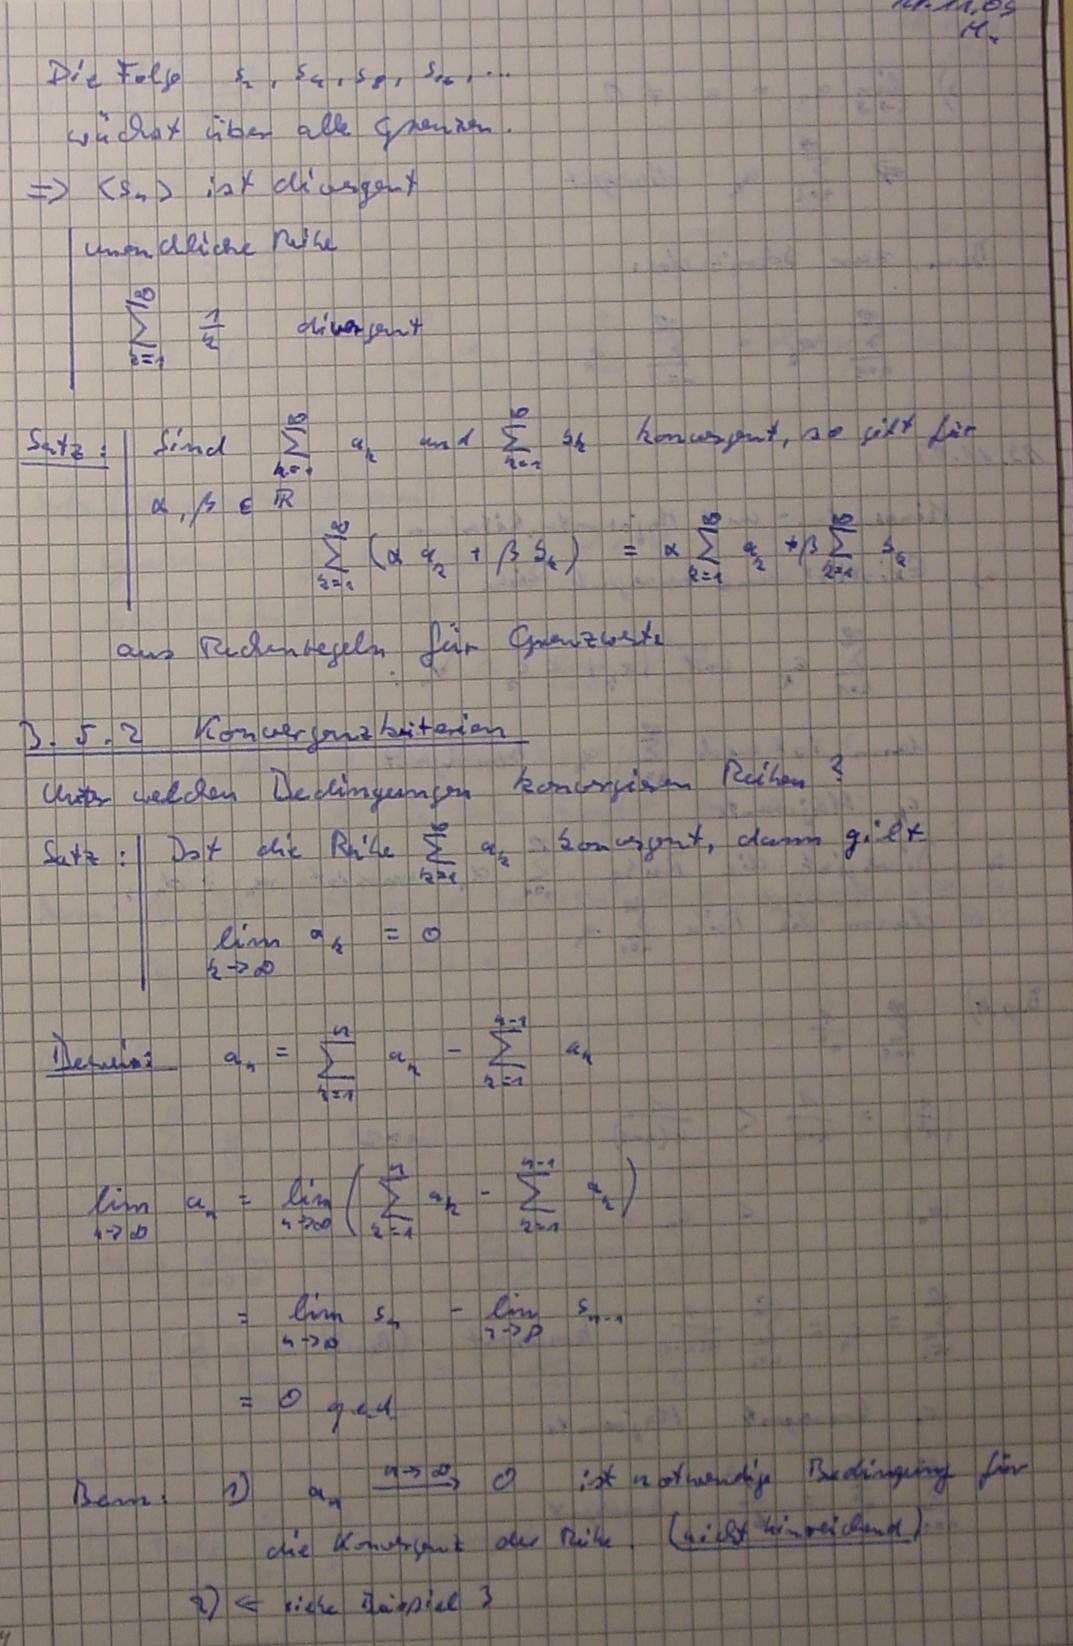 Die Folge s₂, s₄, s₈, s₁₆, ...
wächst über alle Grenzen.
=> <sₙ> ist divergent
unendliche Reihe
∑_{k=1}^{∞} 1/k divergent
Satz: Sind ∑_{k=1}^{∞} a_k und ∑_{k=1}^{∞} b_k konvergent, so gilt für
α, β ∈ ℝ
∑_{k=1}^{∞} (α a_k + β b_k) = α ∑_{k=1}^{∞} a_k + β ∑_{k=1}^{∞} b_k
aus Rechenregeln für Grenzwerte
3.5.2 Konvergenzkriterien
Unter welchen Bedingungen konvergieren Reihen?
Satz: Ist die Reihe ∑_{k=1}^{∞} a_k konvergent, dann gilt
lim_{k→∞} a_k = 0
Beweis: a_n = ∑_{k=1}^{n} a_k - ∑_{k=1}^{n-1} a_k
lim_{n→∞} a_n = lim_{n→∞} (∑_{k=1}^{n} a_k - ∑_{k=1}^{n-1} a_k)
= lim_{n→∞} s_n - lim_{n→∞} s_{n-1}
= 0 qed
Bem: 1) a_n —n→∞→ 0 ist notwendige Bedingung für
die Konvergenz der Reihe. (nicht hinreichend)
2) ← siehe Beispiel 3